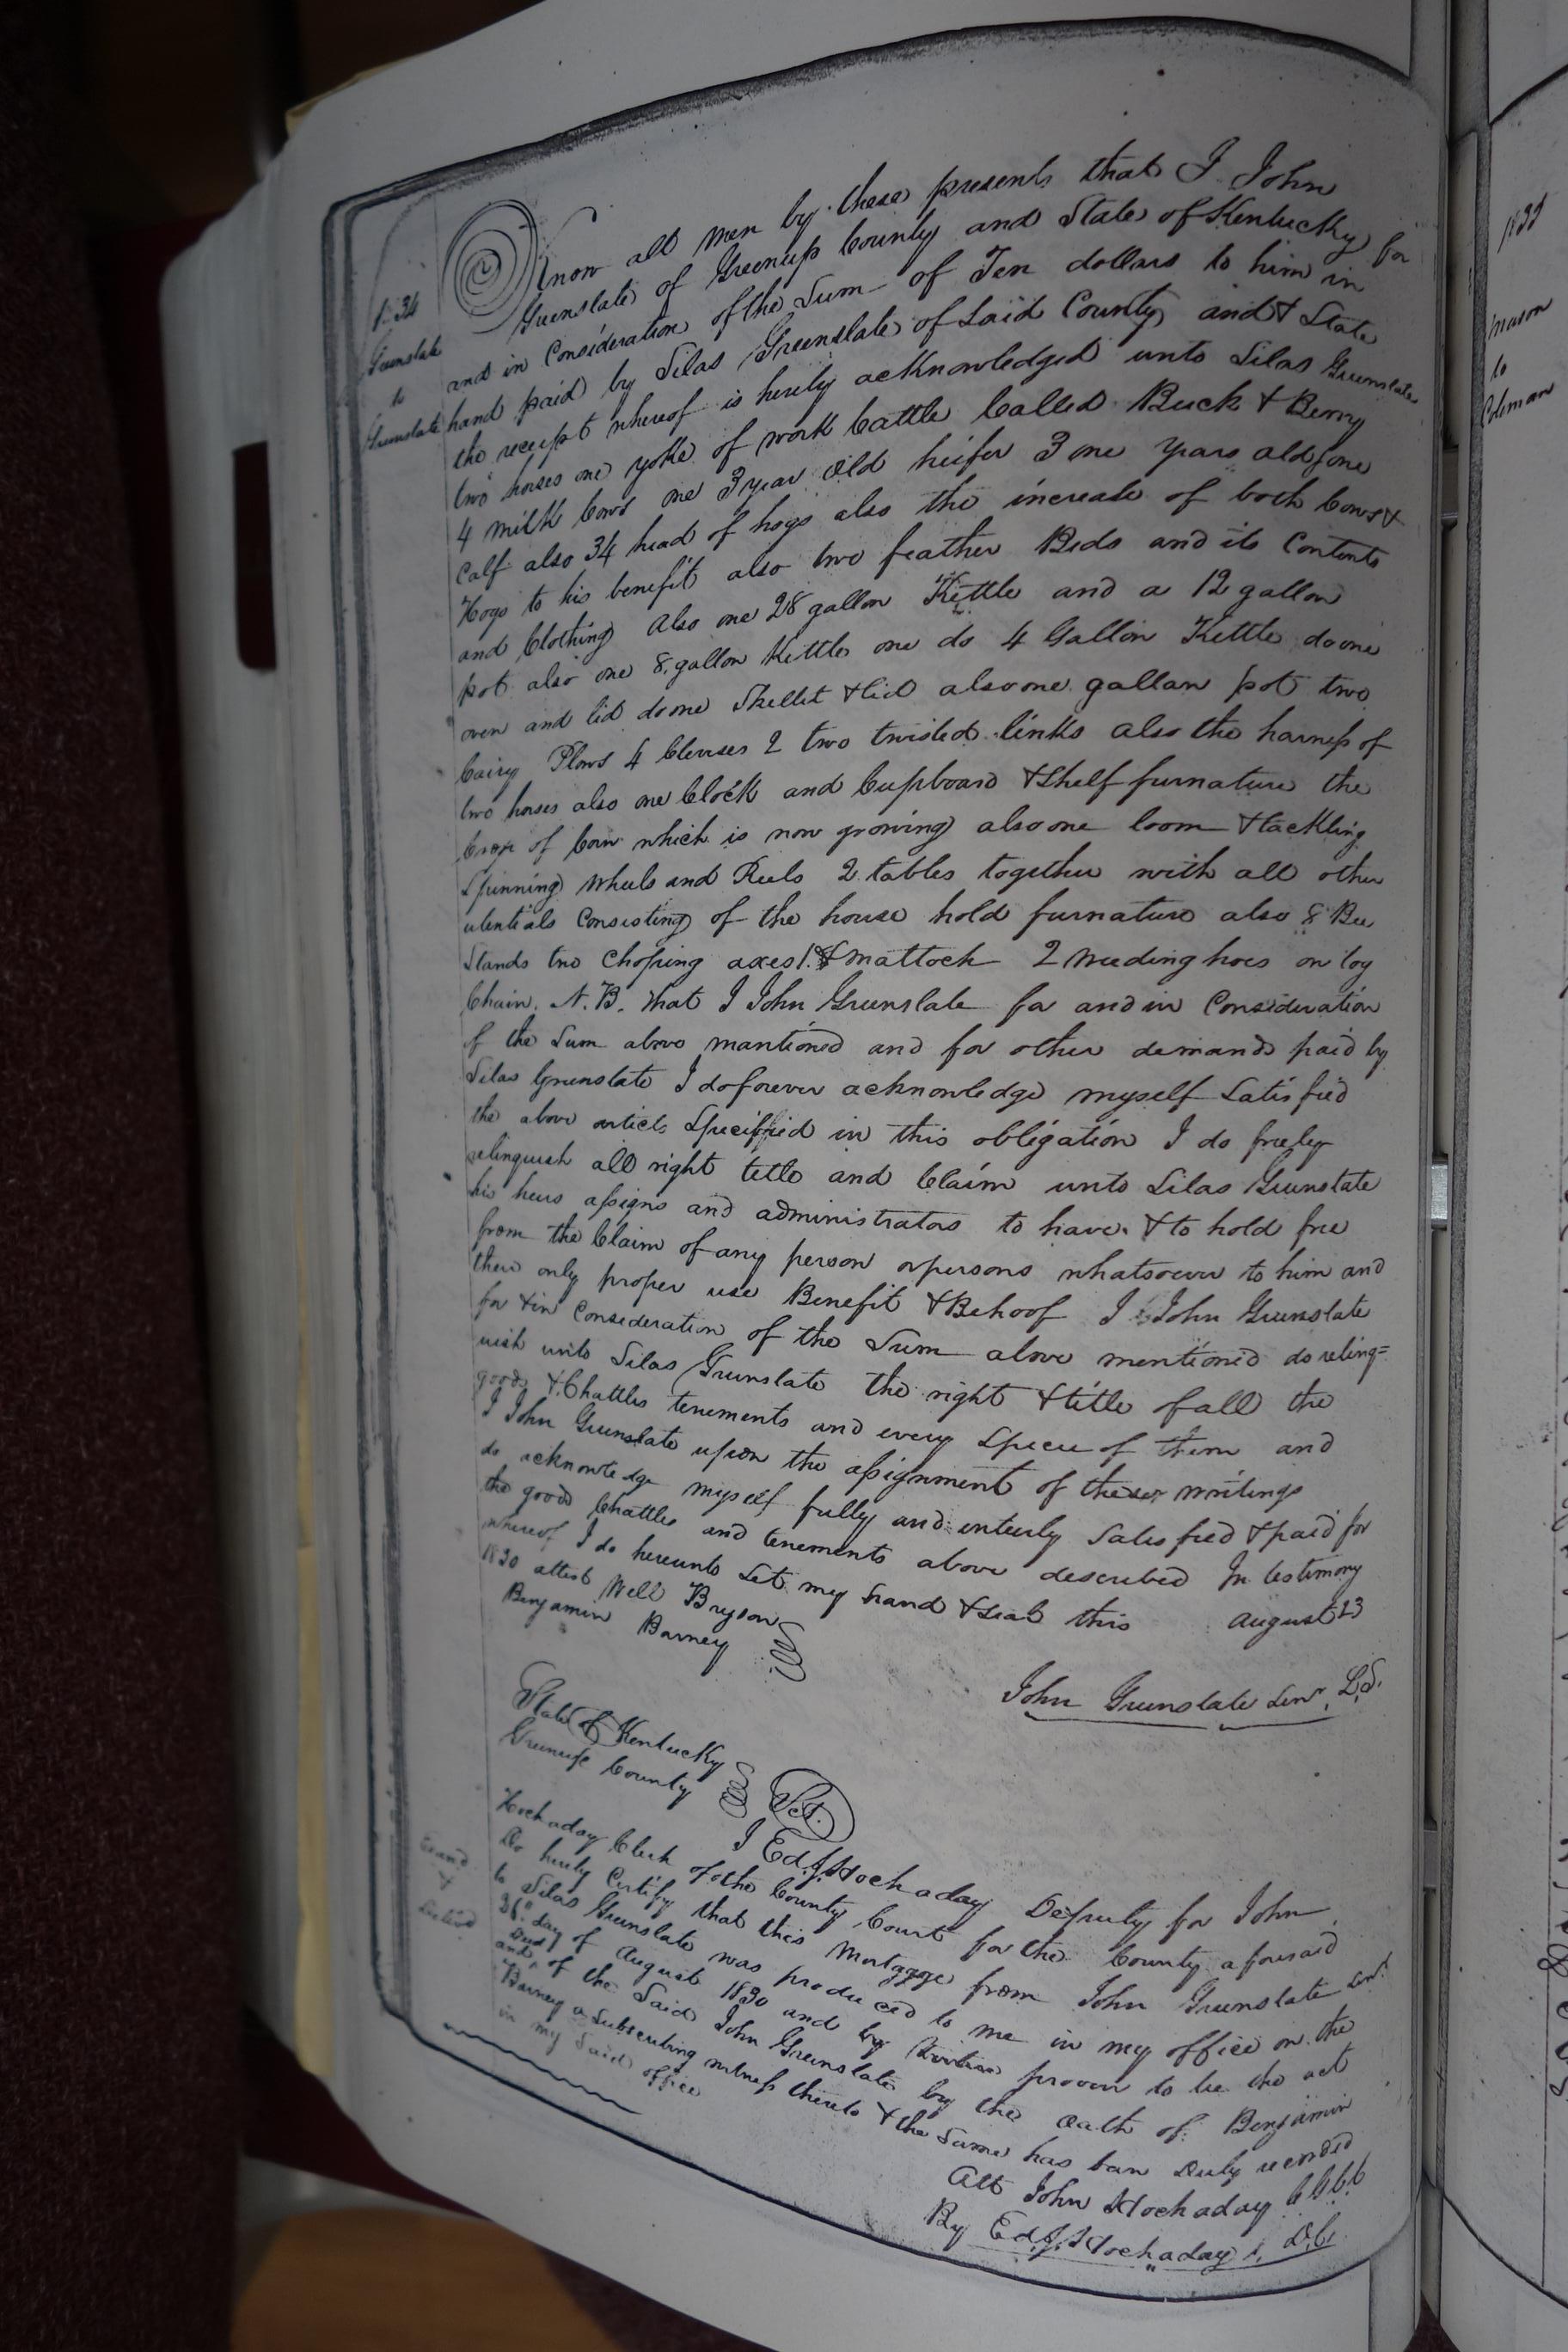 Know all men by these presents that I John
Greenslate of Greenup County and State of Kentucky for
and in Consideration of the Sum of Ten dollars to him in
hand paid by Silas Greenslate of Said County and & State
the receipt whereof is herily acKnowledged unto Silas Greenslate
two horses one yoke of work Cattle Called Buck & Berry
4 milk Cows one 3 year old heifer 3 one years old & one
Calf also 34 head of hogs also the increase of both Cows &
Hogs to his benefit also two feather Beds and its Contents
and Clothing Also one 28 gallon Kettle and a 12 gallon
pot also one 8 gallon Kittle one do 4 Gallon Kettle do one
oven and lid do one Skellet & lid also one gallan pot two
Cairy Plows 4 Clevises 2 two twisted links also the harness of
two horses also one Clock and Cupboard & Shelf furnature the
Crop of Corn which is now growing also one loom & tackling
Spinning Wheels and Reels 2 tables together with all other
utentials Consisting of the house hold furnature also 8 Bee
Stands two Choping axes 1 & mattock 2 weeding hoes on log
Chain. N.B. that I John Greenslate for and in Consideration
of the Sum above mantioned and for other demands paid by
Silas Greenslate I do forever acknowledge myself Satisfied
the above articls Specified in this obligation I do freely
relinquish all right title and Claim unto Silas Greenslate
his heirs assigns and administrators to have & to hold free
from the Claim of any person or persons whatsoever to him and
their only proper use Benefit & Behoof I John Greenslate
for & in Consideration of the Sum above mentioned do reling=
uish unto Silas Greenslate the right & title of all the
goods & Chattles tenements and every Specie of them and
I John Greenslate upon the assignment of these writings
do acknowledge myself fully and enteerly Satisfied & paid for
the goods Chattles and tenements above described In testimony
whereof I do hereunto Set my hand & Seal this August 23
1830 attest Will Bryson
Benjamin Barney
John Greenslate Senr. L.S.
State of Kentucky
Greenup County Sct.
I Ed. J. Hockaday Deputy for John
Hockaday Clerk of the County Court for the County aforesaid
Do herily Certify that this Mortgage from John Greenslate Senr.
to Silas Greenslate was produced to me in my office on the
day of August 1830 and by proven to be the act
and Deed of the Said John Greenslate by the Oath of Benjamin
Barney a Subscribing witness thereto & the Same has ban Duly recorded
in my Said office
Att John Hockaday C.G.C.C
By Ed. J. Hockaday, D.C.
Greenslate
to
Greenslate
Mason
to
Coleman